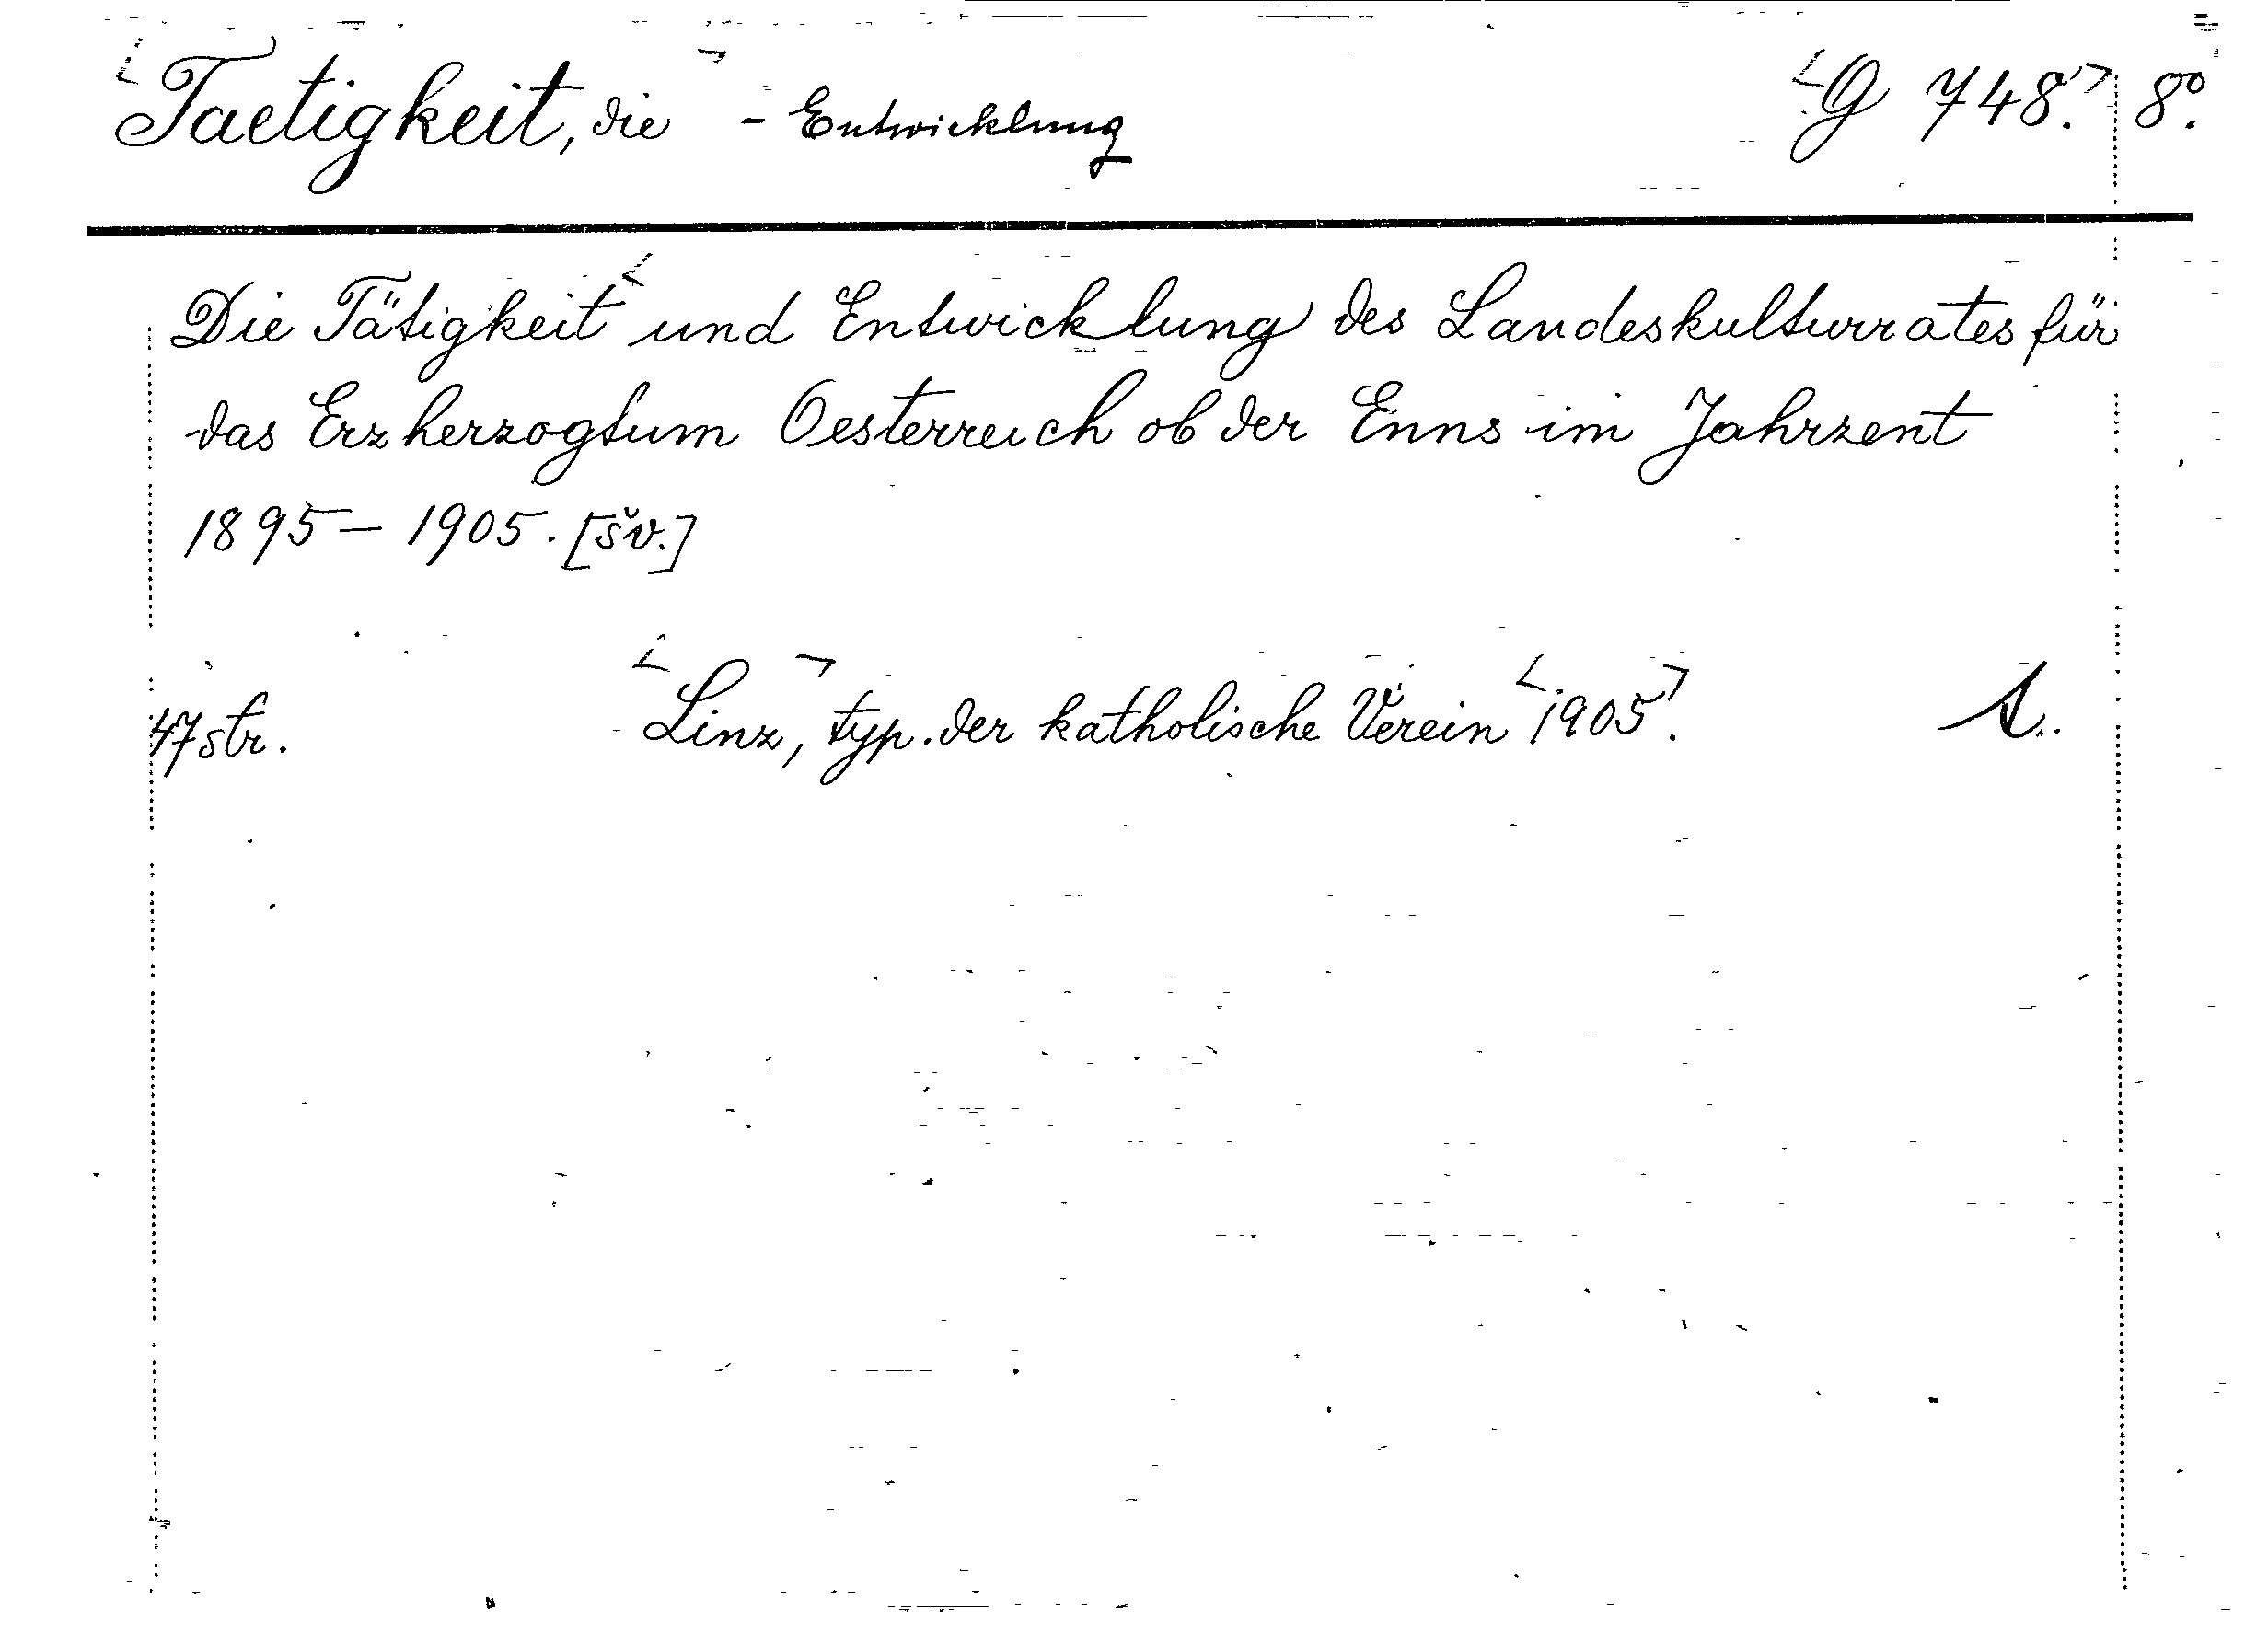 Taetigkeit, die - Entwicklung G 748. 8°.
Die Tätigkeit und Entwicklung des Landeskulturrates für
das Erzherzogtum Oesterreich ob der Enns im Jahrzent
1895 - 1905. [šv.]
47 str. Linz, typ. der katholische Verein 1905. 1.